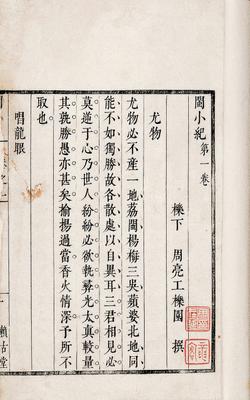 閩小紀第一卷
櫟下 周亮工櫟園 撰
尤物
尤物必不產一地荔閩楊梅三吳蘋婆北地同
能不如獨勝故各散處以自異耳三君相見必
莫逆于心乃世人紛紛必欲執光太真較量
其孰勝愚亦甚矣揄揚過當香火情深予所不
取也
唱龍眼
賴古堂